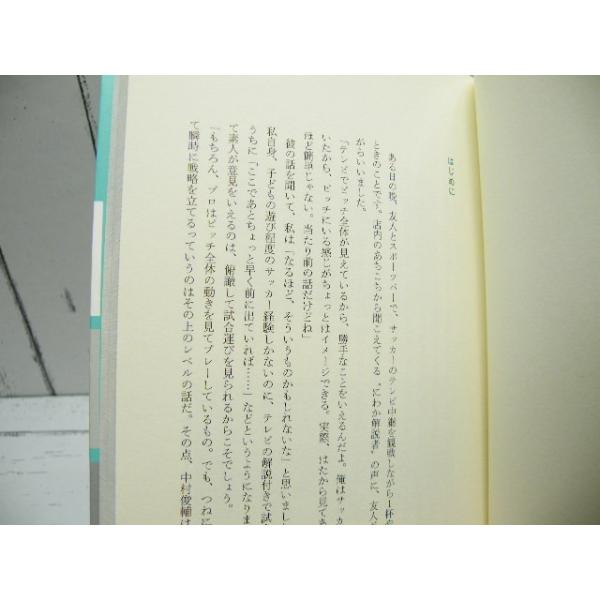 はじめに
ある日の晩、友人とスポーツバーで、サッカーのテレビ中継を観戦しながら一杯や
ときのことです。店内のあちこちから聞こえてくる〝にわか解説者〟の声に、友人が
がらいいました。
「テレビでピッチ全体が見えているから、勝手なことをいえるんだよ。俺はサッカ
いたから、ピッチにいる感じがちょっとはイメージできる。実際、はたから見てあ
ほど簡単じゃない。当たり前の話だけどね」
彼の話を聞いて、私は「なるほど、そういうものかもしれないな」と思いまし
私自身、子どもの遊び程度のサッカー経験しかないのに、テレビの解説付きで試
うちに「ここであとちょっと早く前に出ていれば……」などというようになりま
て素人が意見をいえるのは、俯瞰して試合運びを見られるからこそでしょう。
「もちろん、プロはピッチ全体の動きを見てプレーしているもの。でも、つねに
て瞬時に戦略を立てるっていうのはその上のレベルの話だ。その点、中村俊輔は